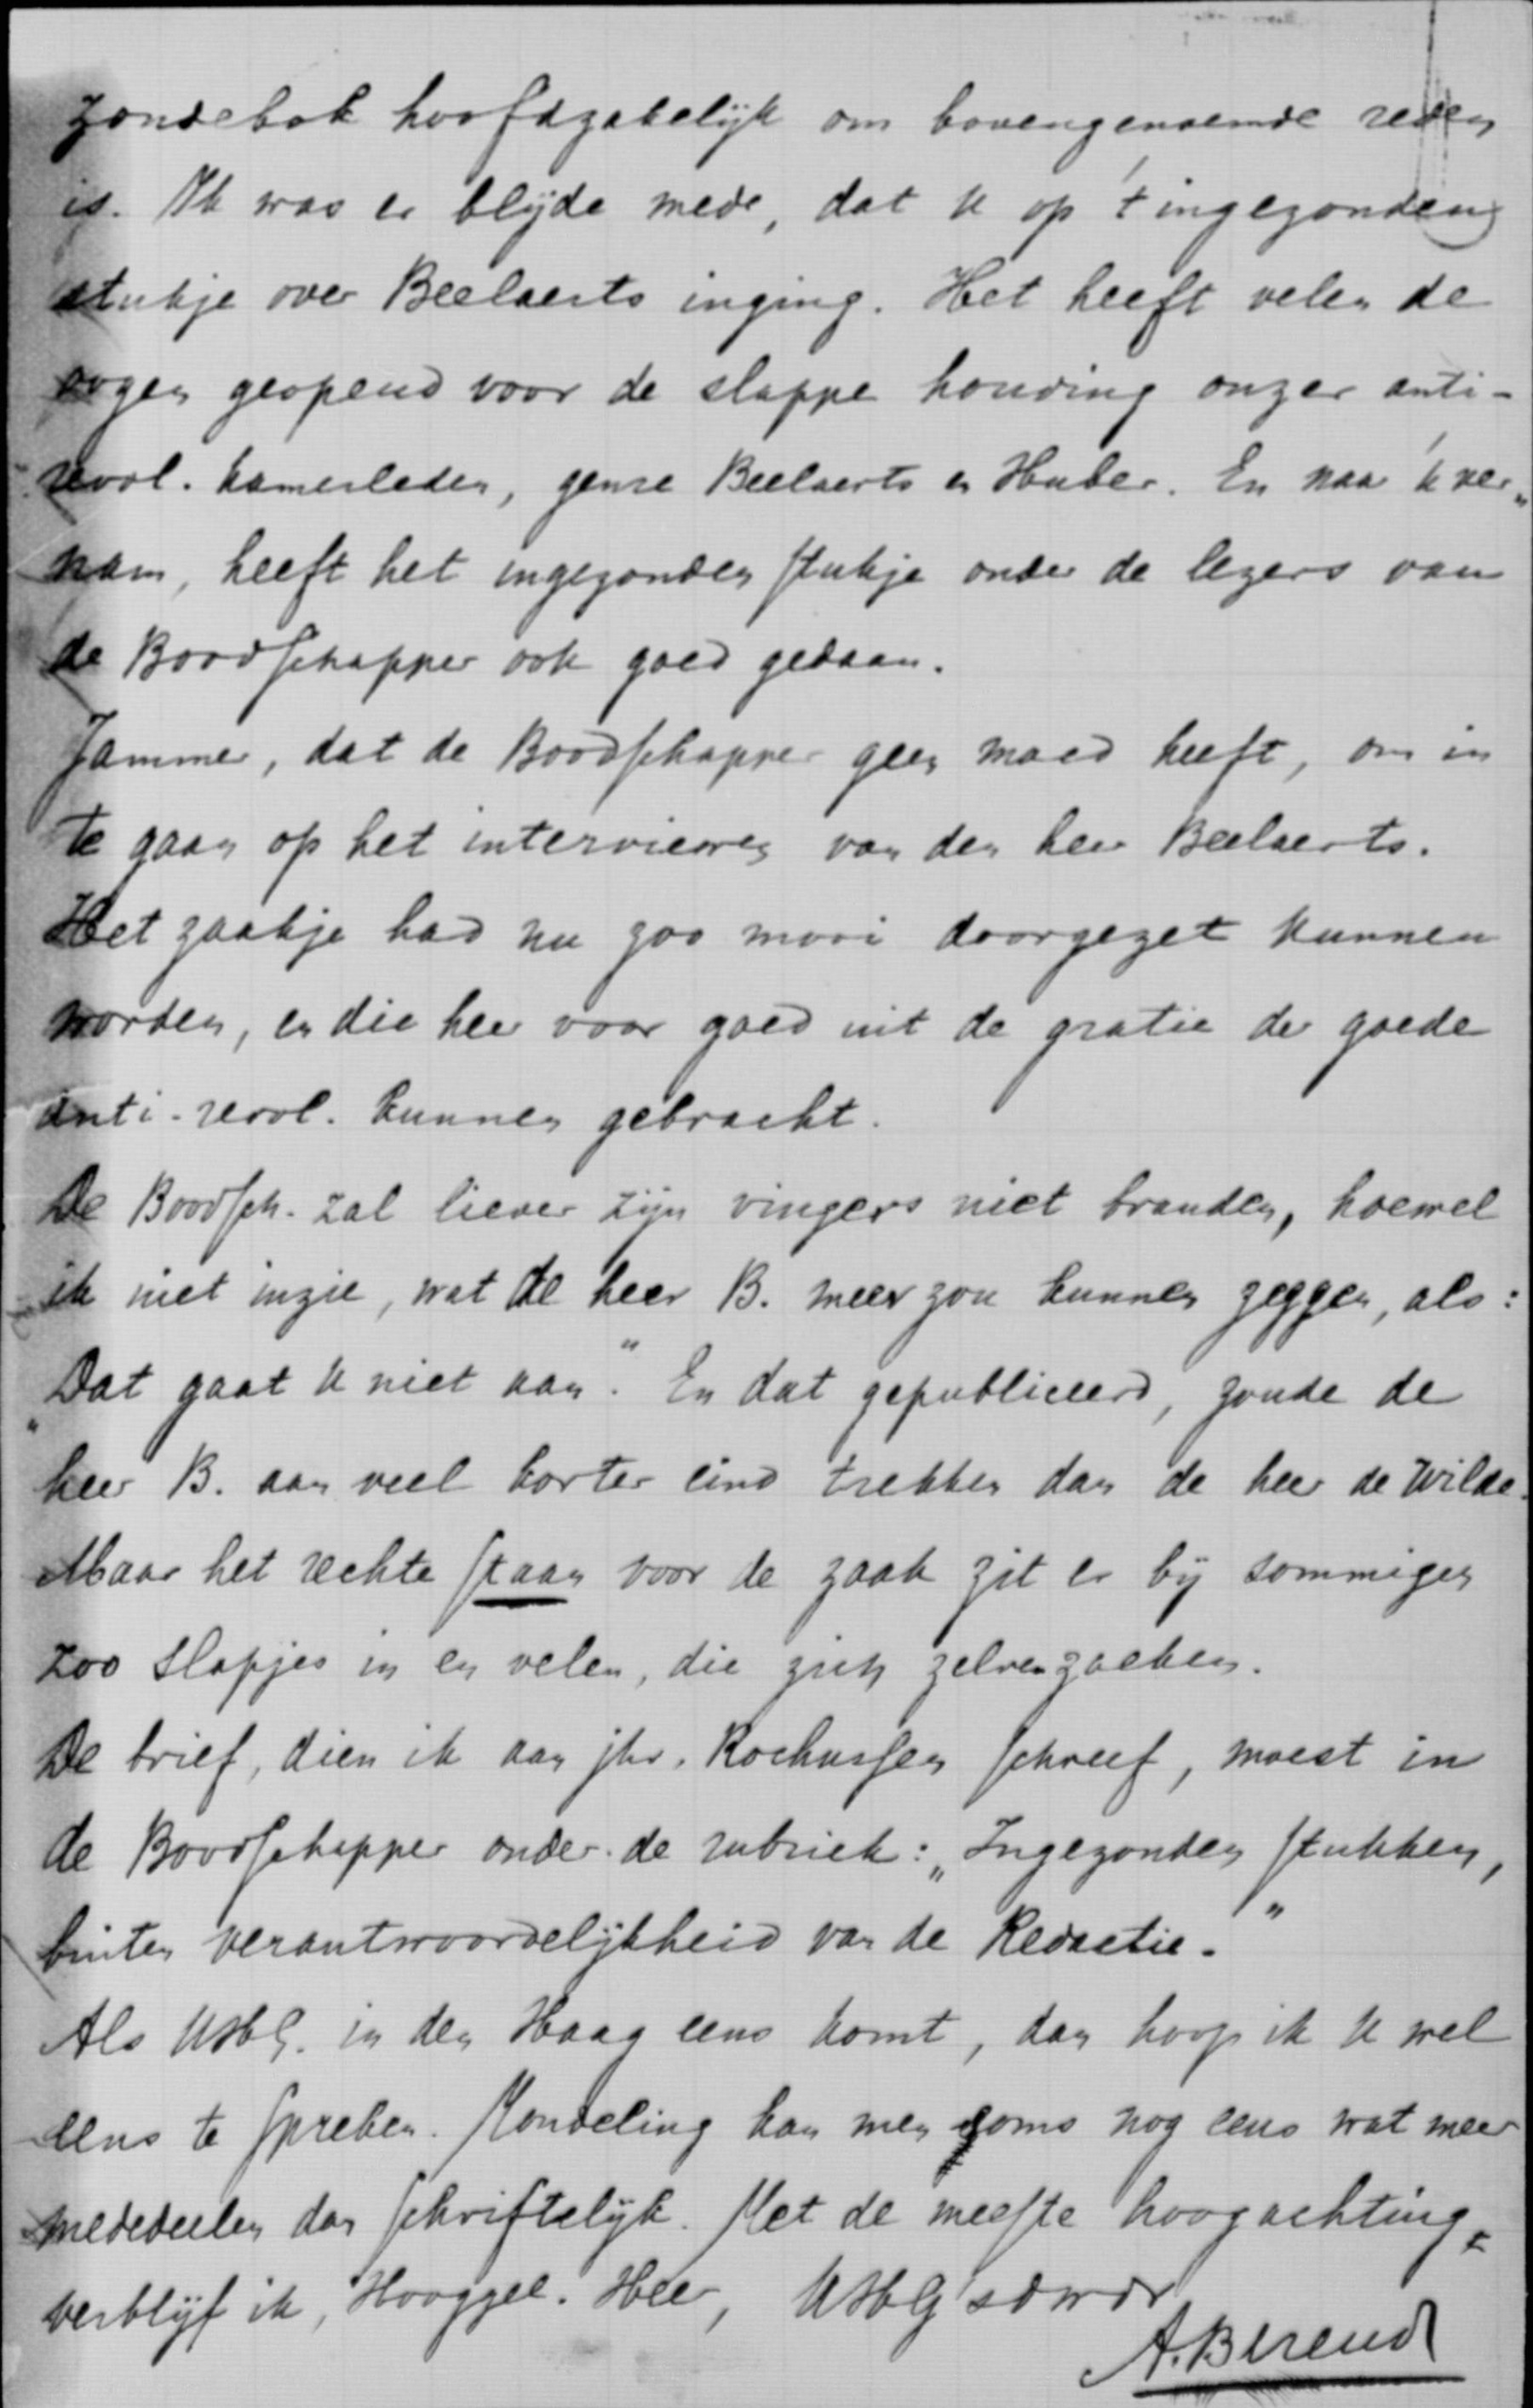 zondebok hoofdzakelijk om bovengenoemde reden
is. Ik was er blijde mede, dat U op 't ingezonden
stukje over Beelaerts inging. Het heeft velen de
oogen geopend voor de slappe houding onzer anti-
revol. kamerleden, genre Beelaerts en Huber. En naar 'k ver„
nam, heeft het ingezonden stukje onder de lezers van
de Boodschapper ook goed gedaan.
Jammer, dat de Boodschapper geen moed heeft, om in
te gaan op het interviewen van den heer Beelaerts.
Het zaakje had nu zoo mooi doorgezet kunnen
worden, en die heer voor goed uit de gratie der goede
anti-revol. kunnen gebracht.
De Boodsch. zal liever zijn vingers niet branden, hoewel
ik niet inzie, wat de heer B. meer zou kunnen zeggen, als:
„Dat gaat U niet aan." En dat gepubliceerd, zoude de
heer B. aan veel korter eind trekken dan de heer de Wilde.
Maar het rechte staan voor de zaak zit er bij sommigen
zoo slapjes in en velen, die zich zelven zoeken.
De brief, dien ik aan jhr. Rochussen schreef, moest in
de Boodschapper onder de rubriek: „Ingezonden stukken,
buiten verantwoordelijkheid van de Redactie."
Als UHG. in den Haag eens komt, dan hoop ik U wel
eens te spreken. Mondeling kan men soms nog eens wat meer
mededeelen dan schriftelijk. Met de meeste hoogachting,
verblijf ik, Hooggel. Heer, UHG's dwdr
A. Berend